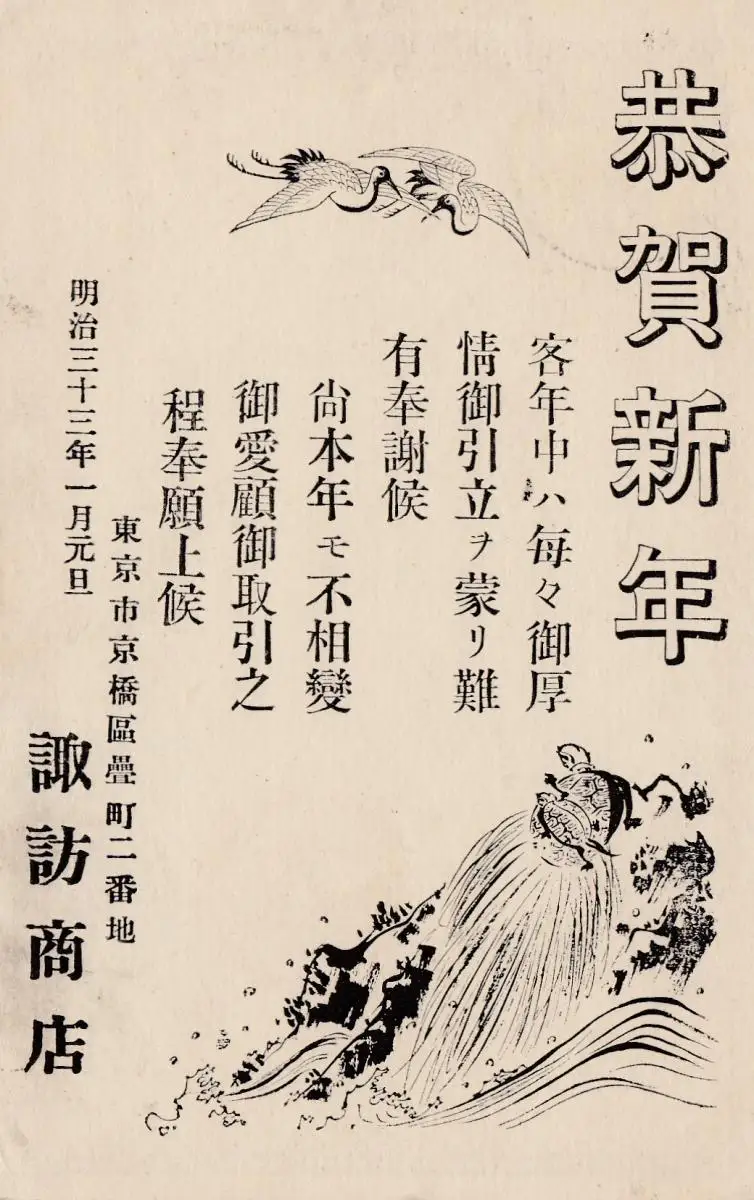 恭賀新年
客年中ハ毎々御厚
情御引立ヲ蒙リ難
有奉謝候
尙本年モ不相變
御愛顧御取引之
程奉願上候
明治三十三年一月元旦
東京市京橋區疊町二番地
諏訪商店